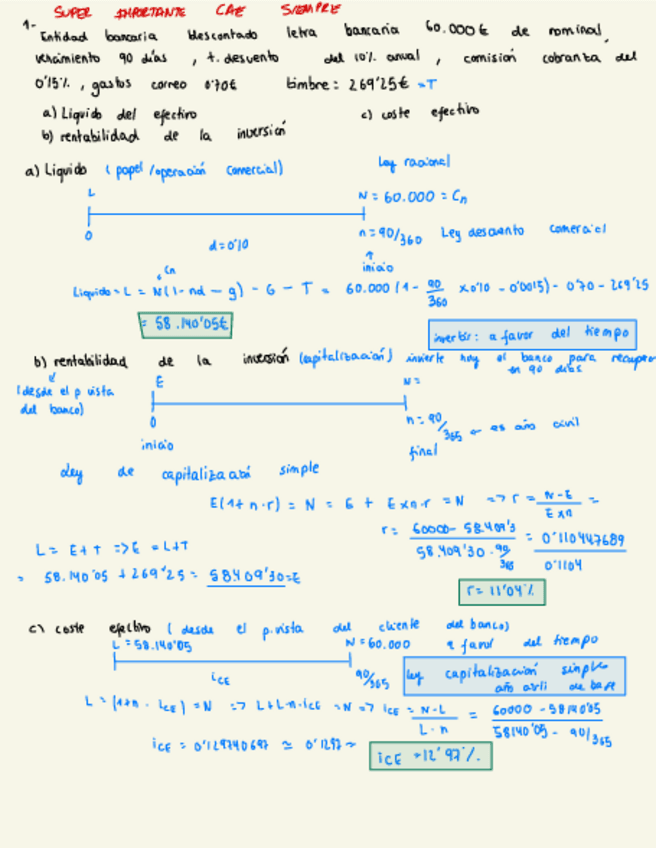 SUPER IMPORTANTE CAE SIEMPRE
1- Entidad bancaria descontado letra bancaria 60.000€ de nominal,
vencimiento 90 días, t. desuento del 10% anual, comisión cobranza del
0'15%, gastos correo 0'70€ timbre: 269'25€ =T
a) Líquido del efectivo c) coste efectivo
b) rentabilidad de la inversión
a) Líquido (papel/operación comercial) Ley racional
L N = 60.000 = Cn
0 d=0'10 n=90/360 Ley descuento comercial
↑
inicio
Cn
Liquido = L = N(1-nd-g) - G - T = 60.000 (1 - 90/360 x0'10 - 0'0015) - 0'70 - 269'25
= 58.140'05€
invertir: a favor del tiempo
b) rentabilidad de la inversión (capitalización) invierte hoy el banco para recuperar
en 90 días
(desde el p vista
del banco)
E N=
0 n=90/365 ← es año civil
inicio final
Ley de capitalización simple
E(1+n·r) = N = E + Exn·r = N => r = N-E / Exn =
L = E+T => E = L+T
r = 60000 - 58.409'3 / 58.409'30 · 90/365 = 0'110447689 / 0'1104
= 58.140'05 + 269'25 = 58409'30=E
r= 11'04%
c) coste efectivo (desde el p.vista del cliente del banco)
L=58.140'05 N=60.000 a favor del tiempo
iCE 90/365
ley capitalización simple
año civil de base
L = (1+n·iCE) = N => L+L·n·iCE = N => iCE = N-L / L·n = 60000 - 58140'05 / 58140'05 - 90/365
iCE = 0'129740697 ≃ 0'1297 ≈
iCE = 12'97%.